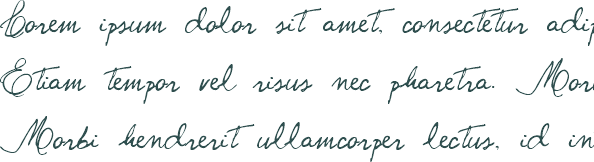 Lorem ipsum dolor sit amet, consectetur adip
Etiam tempor vel risus nec pharetra. Mor
Morbi hendrerit ullamcorper lectus, id in